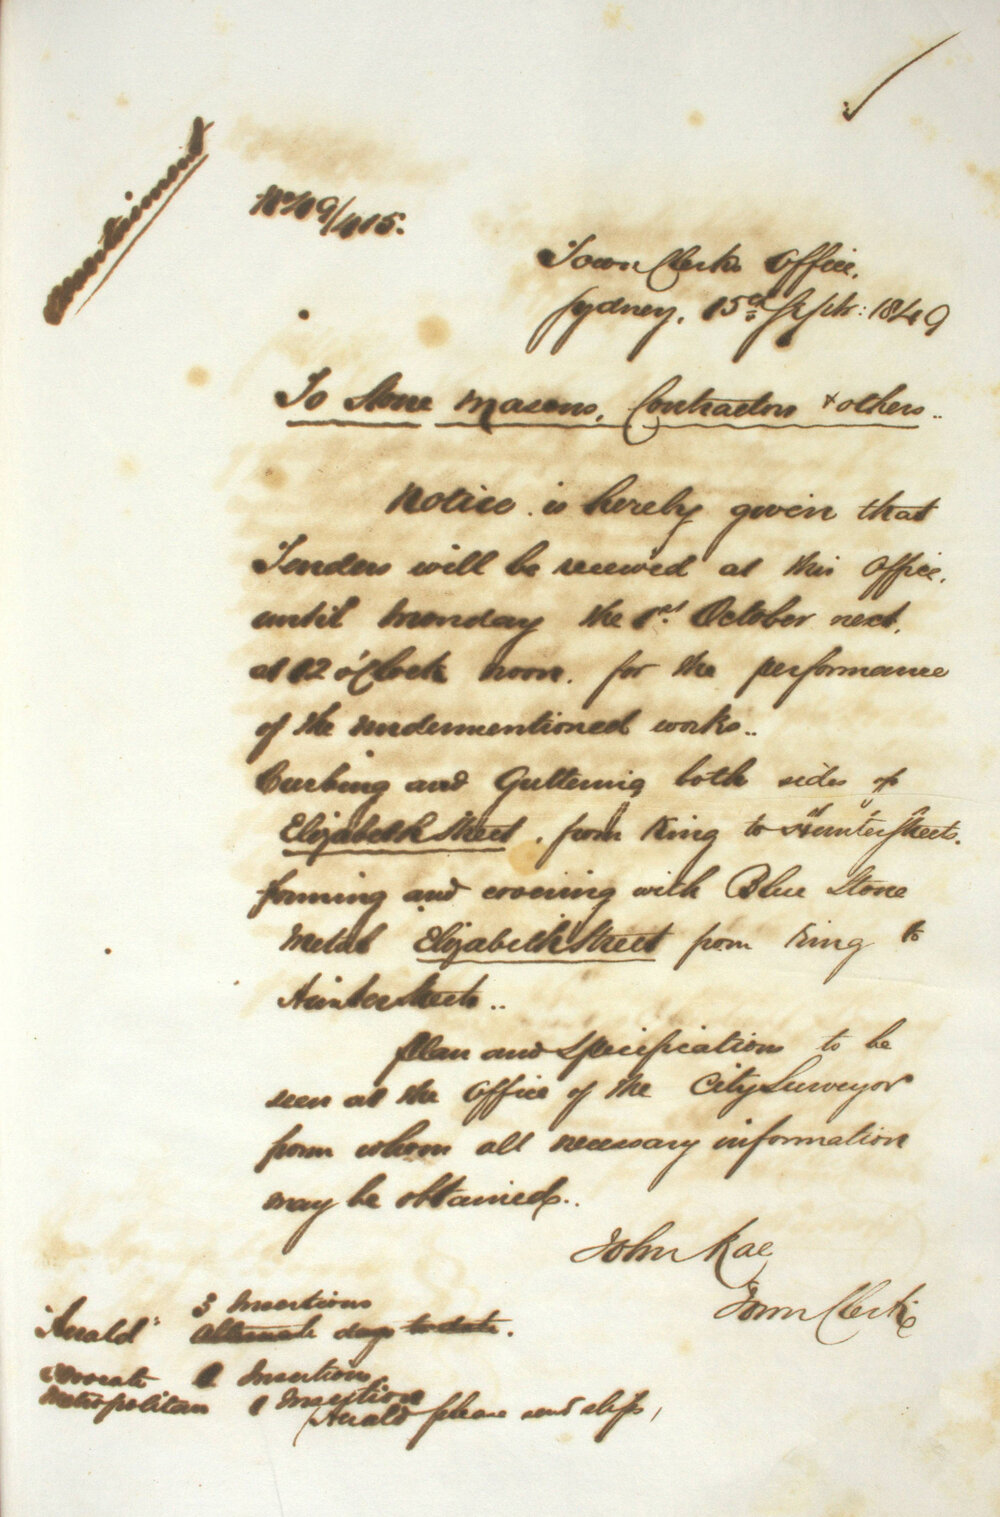 Advertisement
No 49/415.
Town Clerks Office.
Sydney, 15th Septr: 1849
To Stone Masons, Contractors & others..
Notice is hereby given that
Tenders will be received at this Office.
until Monday the 1st October next.
at 12 o'Clock noon. for the performance
of the undermentioned works..
Curbing and Guttering both sides of
Elizabeth Street, from King to Hunter Streets.
forming and covering with Blue Stone
Metal Elizabeth Street from King to
Hunter Streets..
Plan and Specifications to be
seen at the Office of the City Surveyor
from whom all necessary information
may be obtained..
John Rae
Town Clerk
"Herald" 3 Insertions
Alternate days to date.
1 Insertion
Metropolitan 1 Insertion
Herald please send slips,